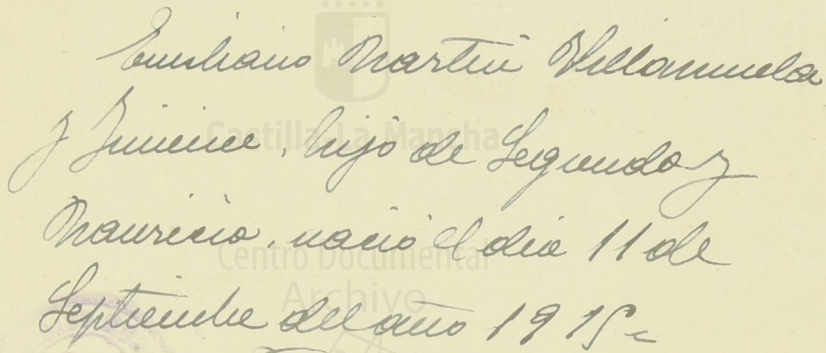 Emiliano Martin Villamuela
y Jimenez, hijo de Segundo y
Mauricia, nació el dia 11 de
Septiembre del año 1915=
Castilla-La Mancha
Centro Documental
Archivo